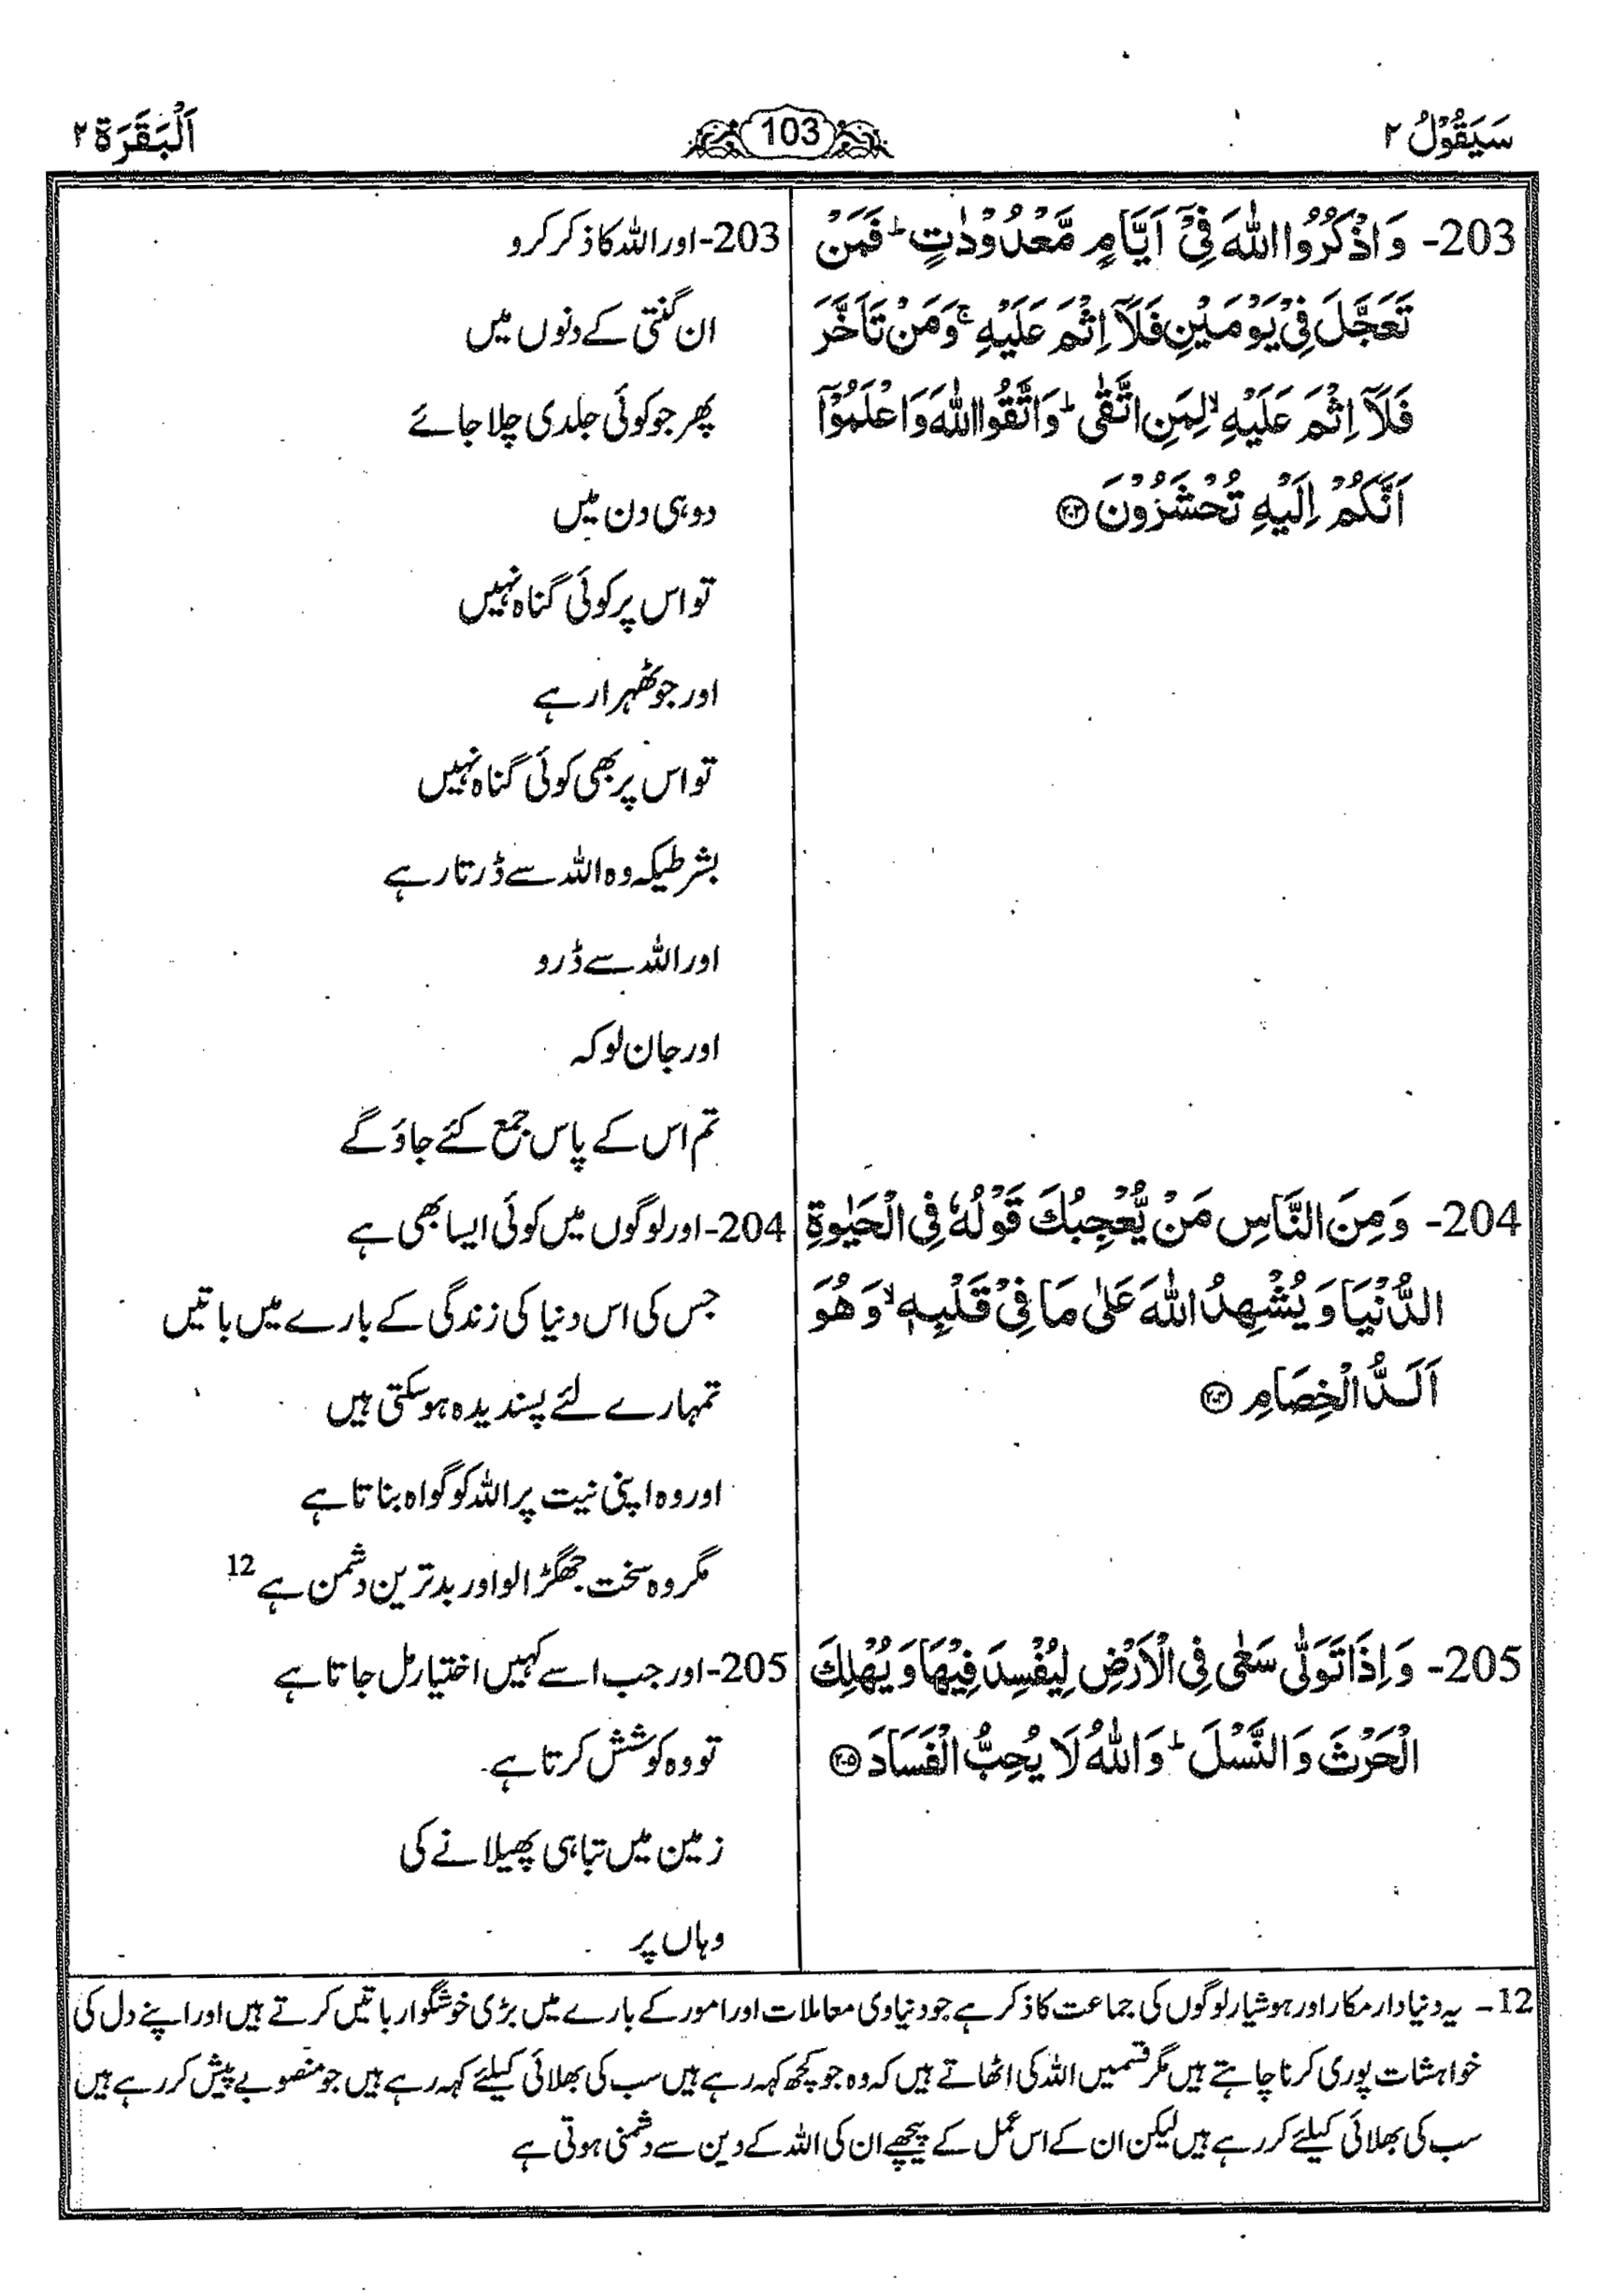 سَيَقُوْلُ ٢
103
اَلْبَقَرَة ٢
203- وَاذْكُرُوا اللّٰهَ فِيْٓ اَيَّامٍ مَّعْدُوْدٰتٍ ؕ فَمَنْ
تَعَجَّلَ فِيْ يَوْمَيْنِ فَلَآ اِثْمَ عَلَيْهِ ۚ وَمَنْ تَاَخَّرَ
فَلَآ اِثْمَ عَلَيْهِ ۙ لِمَنِ اتَّقٰى ؕ وَاتَّقُوا اللّٰهَ وَاعْلَمُوْٓا
اَنَّكُمْ اِلَيْهِ تُحْشَرُوْنَ ۝٢٠٣
203- اور اللہ کا ذکر کرو
ان گنتی کے دنوں میں
پھر جو کوئی جلدی چلا جائے
دو ہی دن میں
تو اس پر کوئی گناہ نہیں
اور جو ٹھہرا رہے
تو اس پر بھی کوئی گناہ نہیں
بشرطیکہ وہ اللہ سے ڈرتا رہے
اور اللہ سے ڈرو
اور جان لو کہ
تم اس کے پاس جمع کئے جاؤ گے
204- وَمِنَ النَّاسِ مَنْ يُّعْجِبُكَ قَوْلُهٗ فِي الْحَيٰوةِ
الدُّنْيَا وَيُشْهِدُ اللّٰهَ عَلٰى مَا فِيْ قَلْبِهٖ ۙ وَهُوَ
اَلَدُّ الْخِصَامِ ۝٢٠٤
204- اور لوگوں میں کوئی ایسا بھی ہے
جس کی اس دنیا کی زندگی کے بارے میں باتیں
تمہارے لئے پسندیدہ ہو سکتی ہیں
اور وہ اپنی نیت پر اللہ کو گواہ بناتا ہے
مگر وہ سخت جھگڑالو اور بدترین دشمن ہے 12
205- وَاِذَا تَوَلّٰى سَعٰى فِي الْاَرْضِ لِيُفْسِدَ فِيْهَا وَيُهْلِكَ
الْحَرْثَ وَالنَّسْلَ ؕ وَاللّٰهُ لَا يُحِبُّ الْفَسَادَ ۝٢٠٥
205- اور جب اسے کہیں اختیار مل جاتا ہے
تو وہ کوشش کرتا ہے
زمین میں تباہی پھیلانے کی
وہاں پر
12- یہ دنیادار مکار اور ہوشیار لوگوں کی جماعت کا ذکر ہے جو دنیاوی معاملات اور امور کے بارے میں بڑی خوشگوار باتیں کرتے ہیں اور اپنے دل کی
خواہشات پوری کرنا چاہتے ہیں مگر قسمیں اللہ کی اٹھاتے ہیں کہ وہ جو کچھ کہہ رہے ہیں سب کی بھلائی کیلئے کہہ رہے ہیں جو منصوبے پیش کر رہے ہیں
سب کی بھلائی کیلئے کر رہے ہیں لیکن ان کے اس عمل کے پیچھے ان کی اللہ کے دین سے دشمنی ہوتی ہے